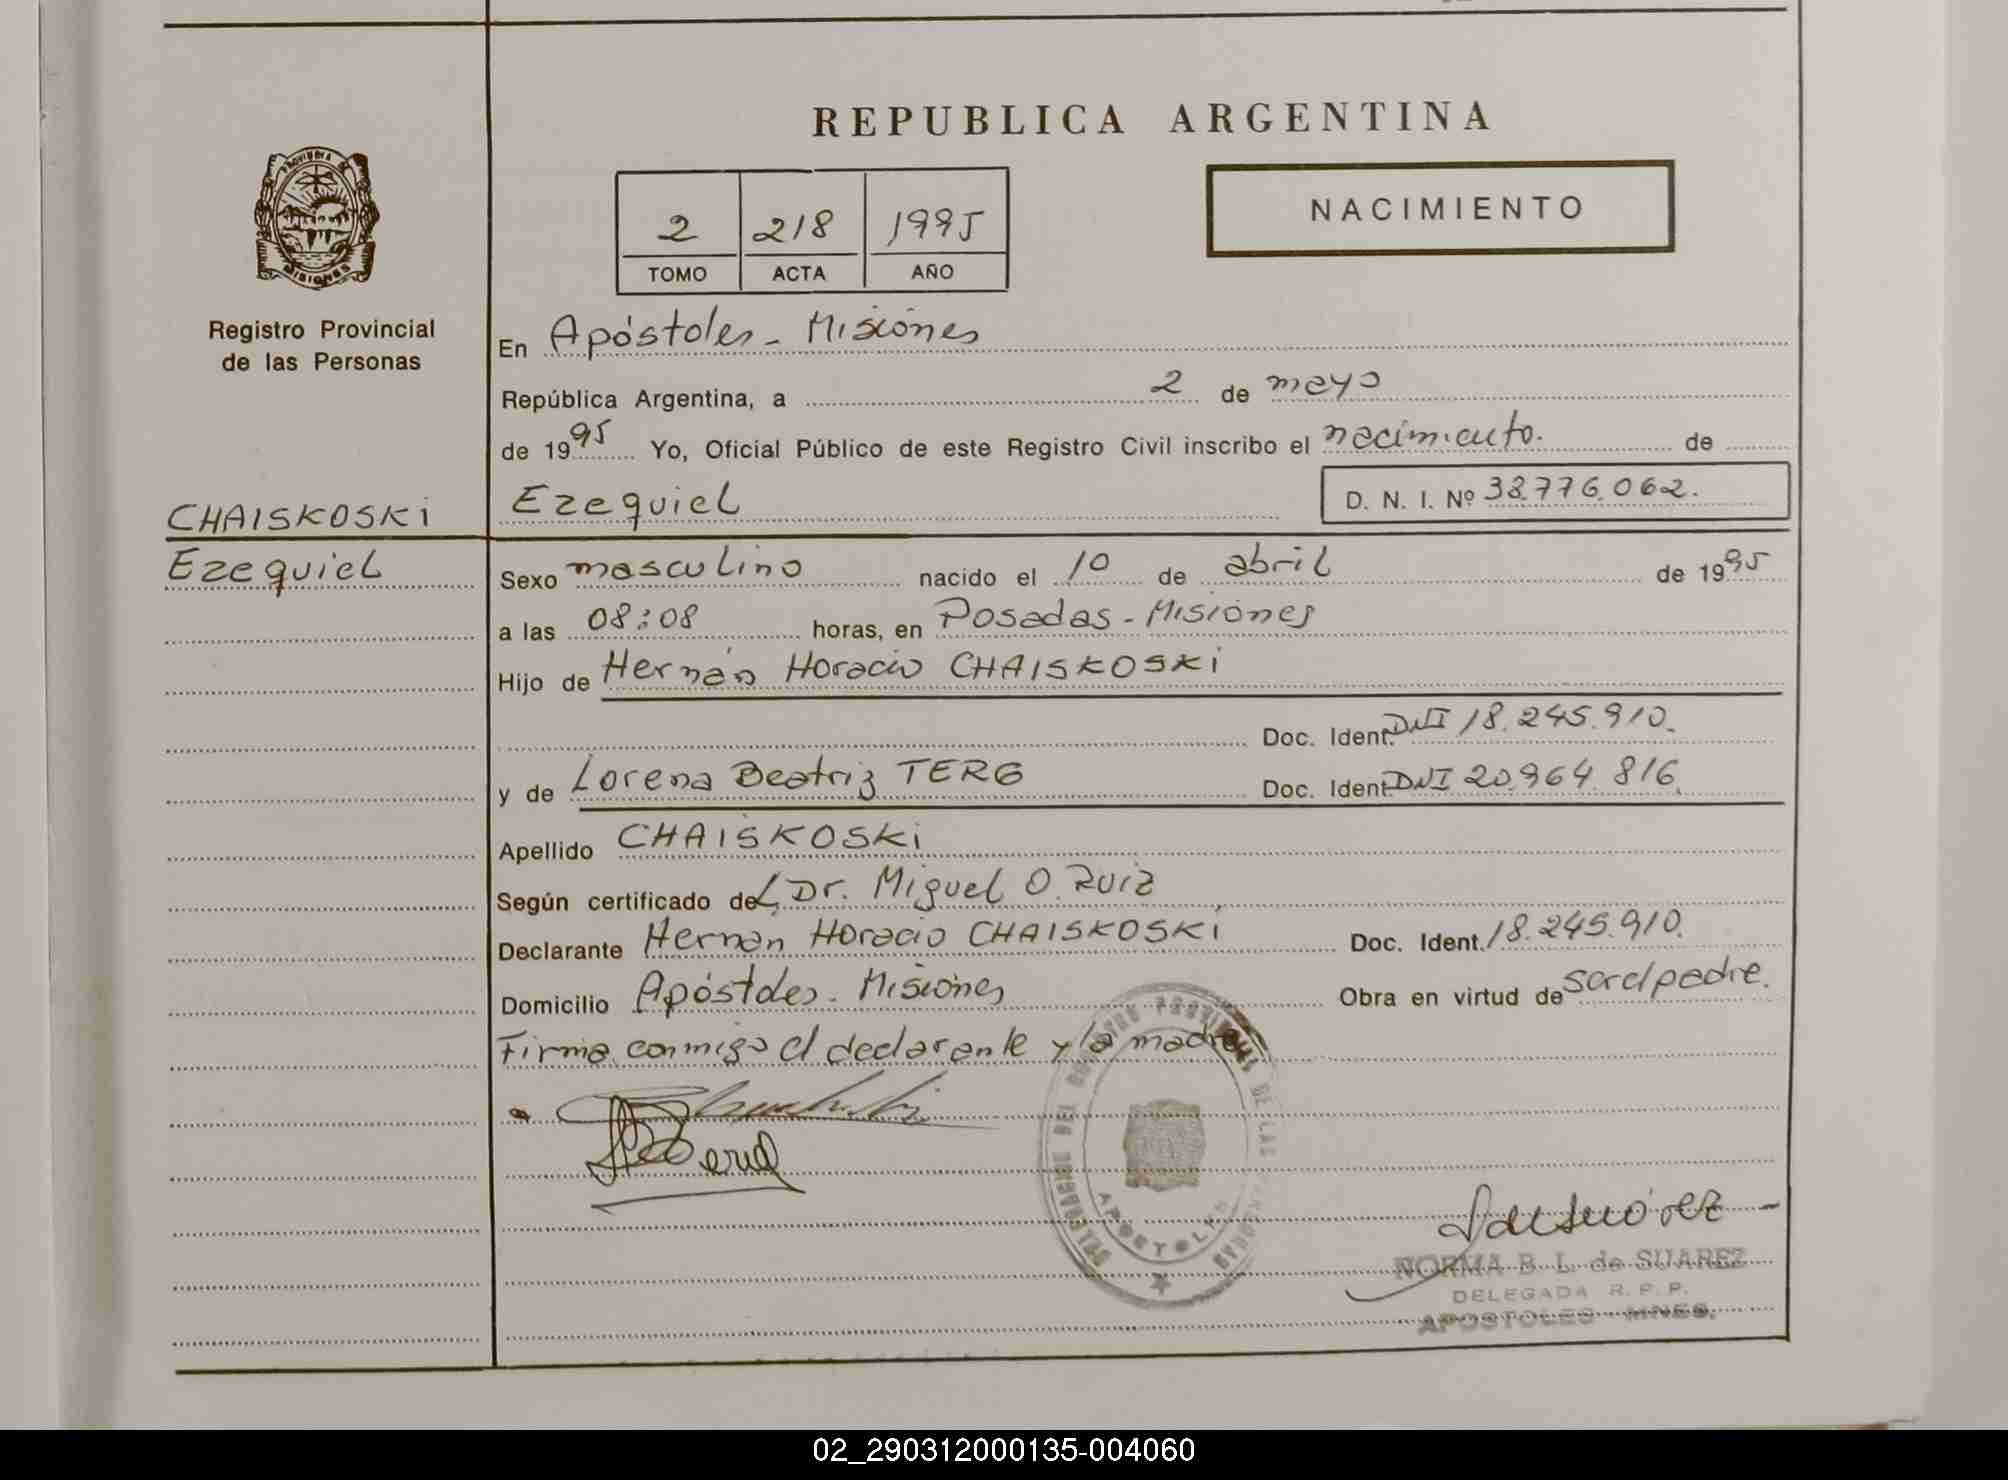 REPUBLICA ARGENTINA
PROVINCIA DE
MISIONES
Registro Provincial
de las Personas
2 218 1995
TOMO ACTA AÑO
NACIMIENTO
En Apóstoles - Misiones
República Argentina, a 2 de mayo
de 1995 Yo, Oficial Público de este Registro Civil inscribo el nacimiento. de
CHAISKOSKI
Ezequiel
Ezequiel
D. N. I. Nº 38.776.062.
Sexo masculino nacido el 10 de abril de 1995
a las 08:08 horas, en Posadas - Misiones
Hijo de Hernán Horacio CHAISKOSKI
Doc. Ident. DNI 18.245.910.
y de Lorena Beatriz TERG Doc. Ident. DNI 20.964.816.
Apellido CHAISKOSKI
Según certificado del Dr. Miguel O. Ruiz
Declarante Hernán Horacio CHAISKOSKI Doc. Ident. 18.245.910.
Domicilio Apóstoles - Misiones Obra en virtud de ser el padre.
Firma conmigo el declarante y la madre
DELEGACION DEL REGISTRO PROVINCIAL DE LAS PERSONAS
APOSTOLES
NORMA B. L. de SUAREZ
DELEGADA R. P. P.
APOSTOLES - MNES.
02_290312000135-004060